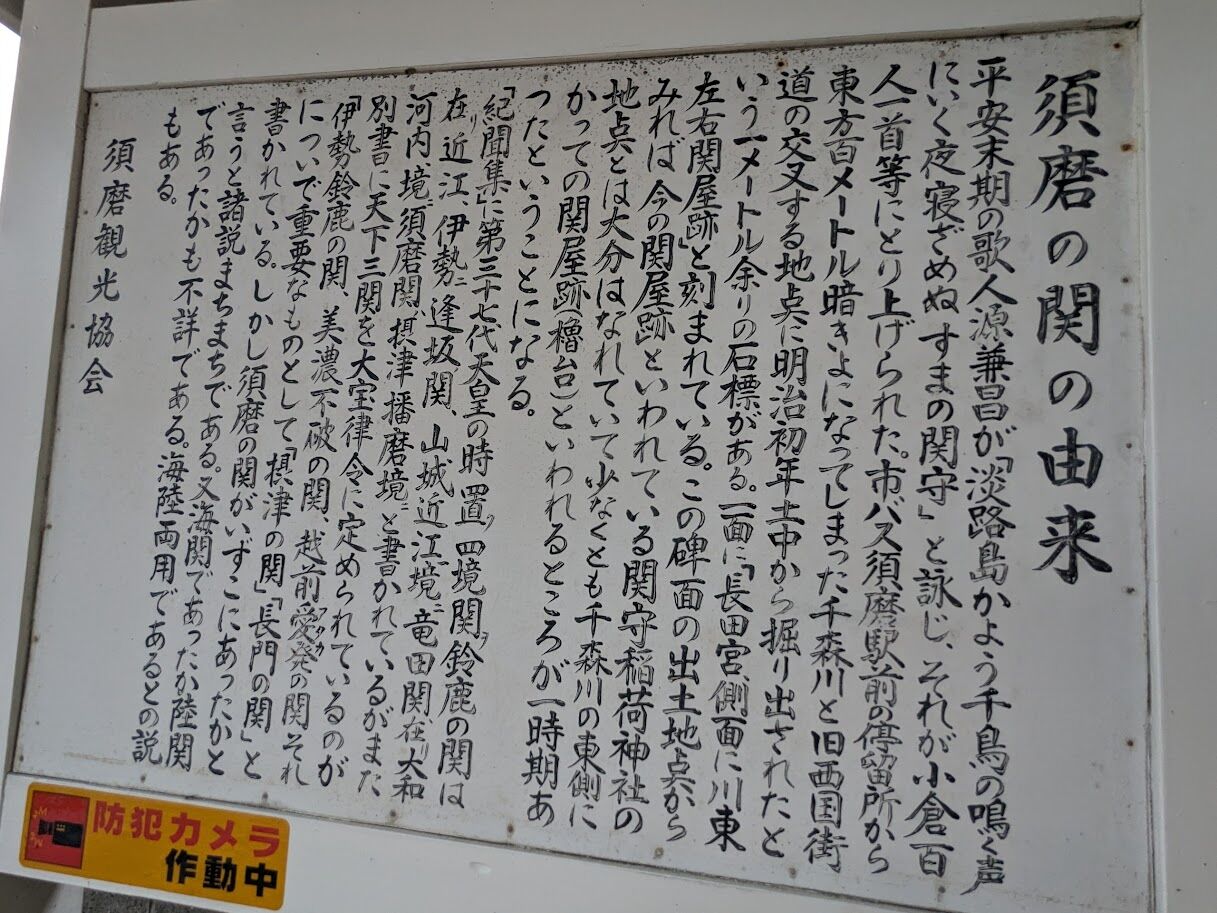 須磨の関の由来
平安末期の歌人源兼昌が「淡路島かよう千鳥の鳴く声
にいく夜寝ざめぬすまの関守」と詠じ、それが小倉百
人一首等にとり上げられた。市バス須磨駅前の停留所から
東方百メートル暗きよになってしまった千森川と旧西国街
道の交叉する地点に明治初年土中から掘り出されたと
いう一メートル余りの石標がある。一面に「長田宮、側面に川東
左右関屋跡」と刻まれている。この碑面の出土地点から
みれば今の関屋跡といわれている関守稲荷神社の
地点とは大分はなれていて少なくとも千森川の東側に
かっての関屋跡(櫓台)といわれるところが一時期あ
つたということになる。
「紀聞集」に第三十七代天皇の時置ク四境関ヲ鈴鹿の関は
在リ近江、伊勢ニ逢坂関、山城近江境ニ竜田関在リ大和
河内境ニ須磨関摂津播磨境ニと書かれているがまた
別書に天下三関を大宝律令に定められているのが
「伊勢鈴鹿の関、美濃不破の関、越前愛発アラチカの関それ
についで重要なものとして「摂津の関」「長門の関」と
書かれている。しかし須磨の関がいずこにあったかと
言うと諸説まちまちである。又海関であったか陸関
であったかも不詳である。海陸両用であるとの説
もある。
須磨観光協会
防犯カメラ
作動中